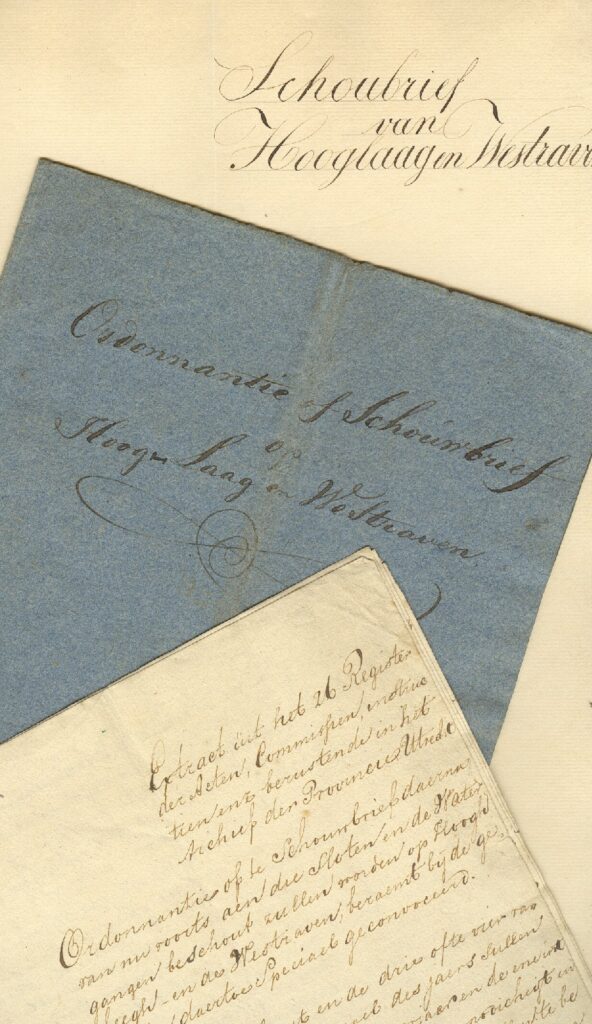 Schoubrief
van
Hooglaag en Westrav
Ordonnantie of Schouwbrief
op
Hoog- Laag en Westraven
Extract uit het 26 Register
der Acten, Commissien, instruc
tien enz berustende in het
Archief der Provincie Utrecht
Ordonnantie ofte Schouwbrief daerna
van nu voorts aen die Sloten en de Water
gangen beschout zullen worden op Hoogh
leegh - en de Westraven, beraemt bij de ge
daertoe Speciael geconvoceerd.
en de drie ofte vier van
des jaers sullen